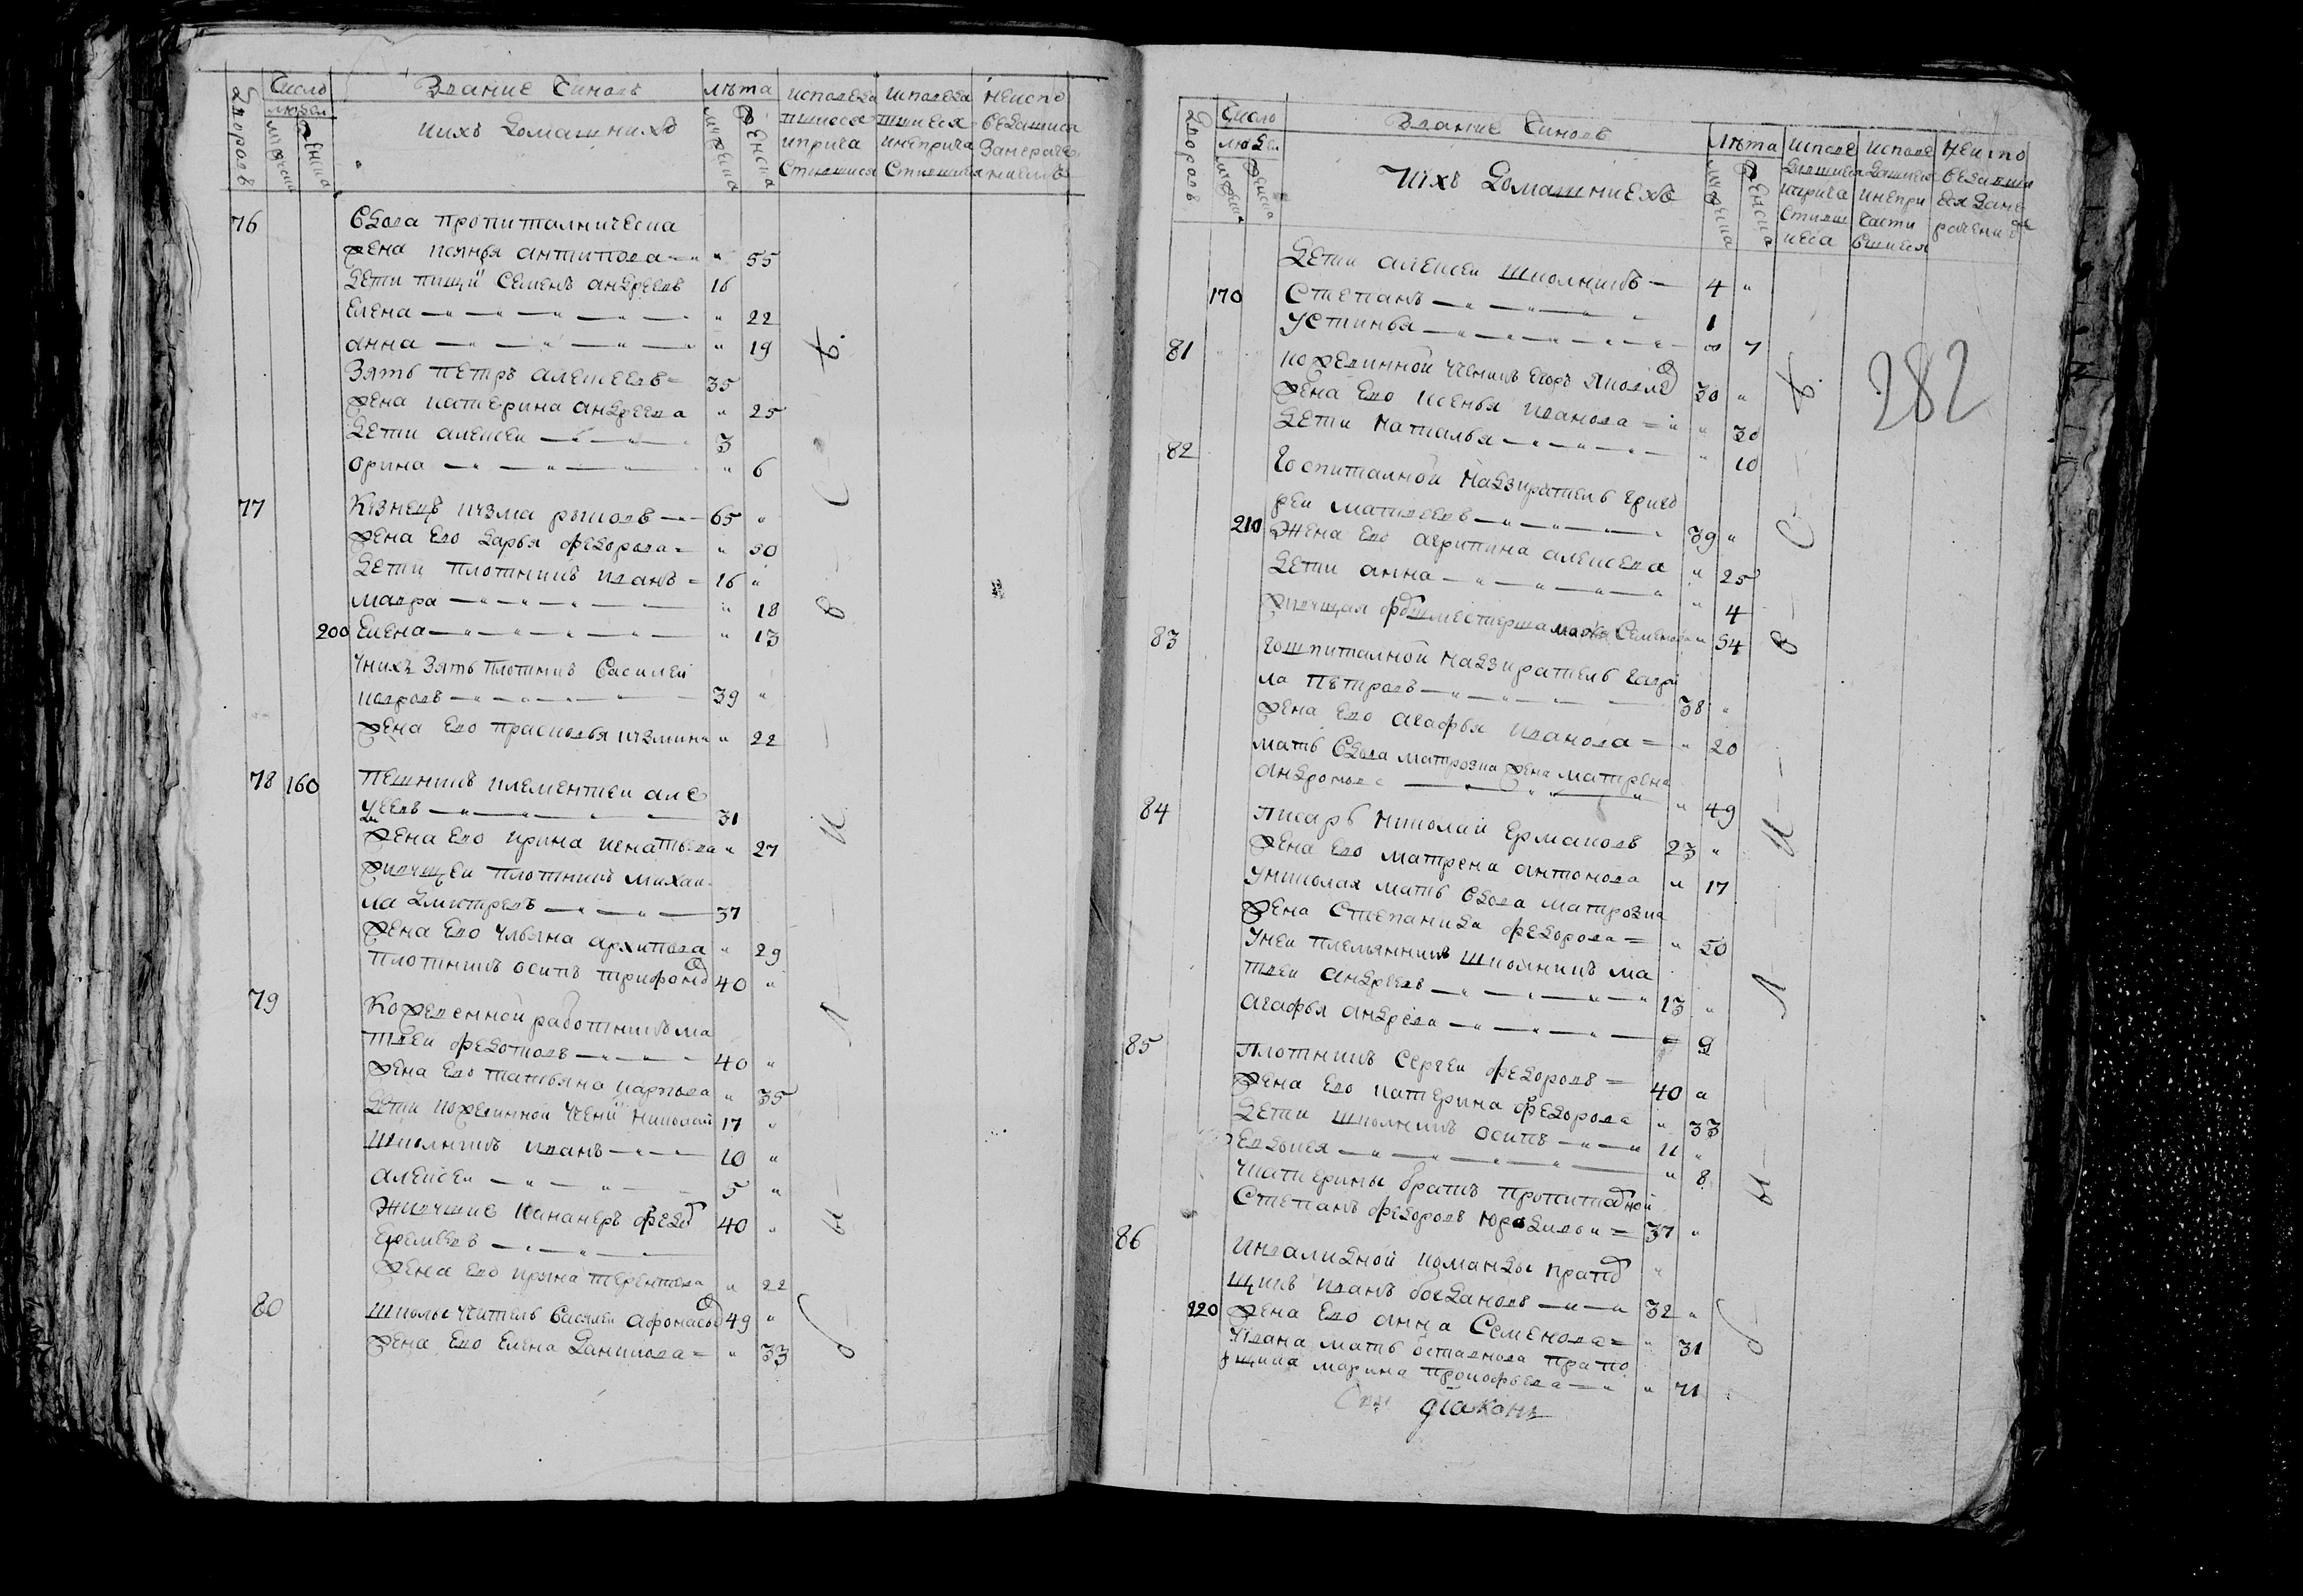 дворовъ
Число
людей
мужеска
женска
Звание чиновъ
ихъ домашнихъ
лѣта
мужеска
женска
исповеда
вшиеся
иприча
стившися
исповеда
вшиеся
инеприча
стившися
неиспо
ведавшися
занерачe
ниемъ
76
вдова пропиталническа
жена ксянья антипова — " 55
дети пищи Семенъ андреевъ 16
Елена — " 22
анна — " 19
Зять петръ алексеевъ 35
жена катерина андреева " 25
дети алексеи — 3
орина — " 6
77 Кузнецъ кузма рыковъ — 65 "
жена ево дарья федорова = " 50
дети плотникъ иванъ = 16 "
мавра — " 18
200 Елена — " 13
уних зять плотник василей
ковровъ — 39 "
жена ево прасковья кузмина " 22
78 160 пешникъ клементеи але
уеевъ — 31
жена ево ирина игнатьева " 27
живущеи плотникъ михаи
ла дмитревъ — 37
жена ево ульяна архипова " 29
плотникъ осипъ трифоно 40 "
79 Коженной работникъ ма
твеи федотовъ — 40 "
жена ево татьяна карпова " 35
дети коженной учени николай 17 "
школникъ иванъ — 10 "
алексеи — 5 "
живущие кананеръ федо 40 "
Еремеевъ —
жена ево ирина терентева " 22
80 школы учитель василеи афонасьев 49 "
жена ево елена данилова = " 33
в - с - в - и - л - ы - б
дворовъ
Число
людеи
мужеска
женска
Звание чиновъ
ихъ домашниехъ
лѣта
мужеска
женска
испове
давшиеся
иприча
стивши
неся
испове
давшиеся
инепри
части
вшиеся
неиспо
ведавши
еся зане
рачение
282
дети алексеи школникъ — 4 "
170 Степанъ — 1
устинья — " 7
81 коженной ученикъ егоръ яковле 30 "
жена ево ксенья иванова = " 30
дети наталья — " 10
82 госпиталной надзиратель григо
реи матвеевъ — 39 "
210 жена ево агрипина алексева " 25
дети анна — " 4
живущая фошместерша марья Семенова " 54
83 гошпиталной надзиратель гаври
ла петровъ — 38 "
жена ево агафья иванова = " 20
мать вдова матрозка жена матрена
андронова — " 49
84 писарь николай ермаковъ 23 "
жена ево матрена антонова " 17
униколая мать вдова матрозка
жена степанида федорова = " 50
унеи племянникъ школникъ ма
твеи андреевъ — 13 "
агафья андрева — = 9
85 плотникъ Сергеи федоровъ = 40 "
жена ево катерина федорова " 33
дети школникъ осипъ — 11 "
евдокея — " 8
укатерины братъ пропитаной
Степанъ федоровъ юродивои = 37 "
86 инвалидной команды прапо
щикъ иванъ богдановъ — 32 "
220 жена ево анна Семенова = " 31
уивана мать оставнова прапо
рщика марина прокофьева — " 71
дiаконъ